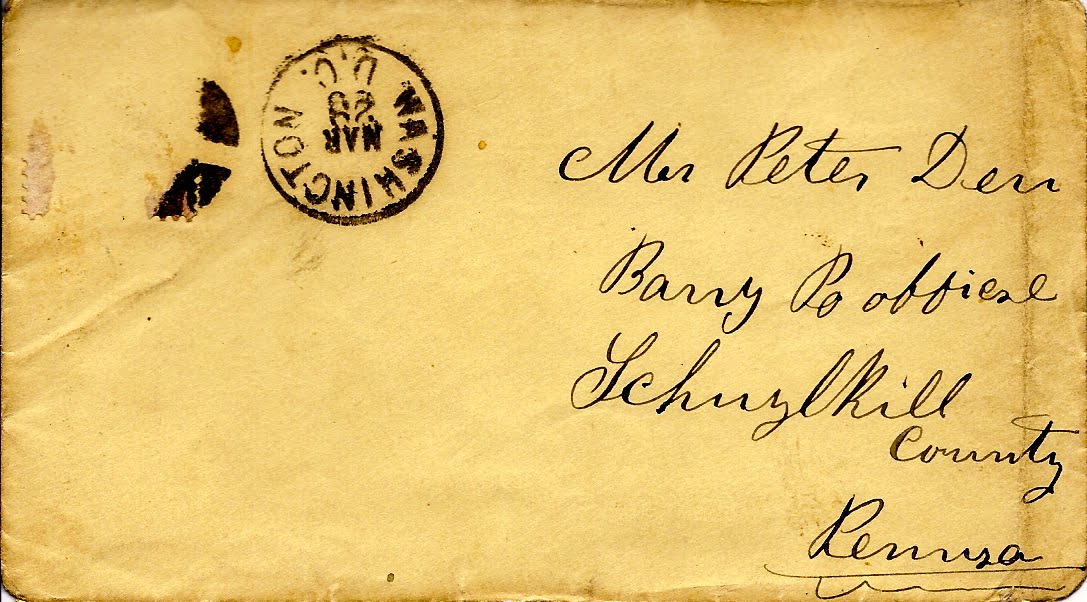 WASHINGTON D.C.
MAR
25
Mr Peter Derr
Barry Po offices
Schuylkill
County
Pennsa